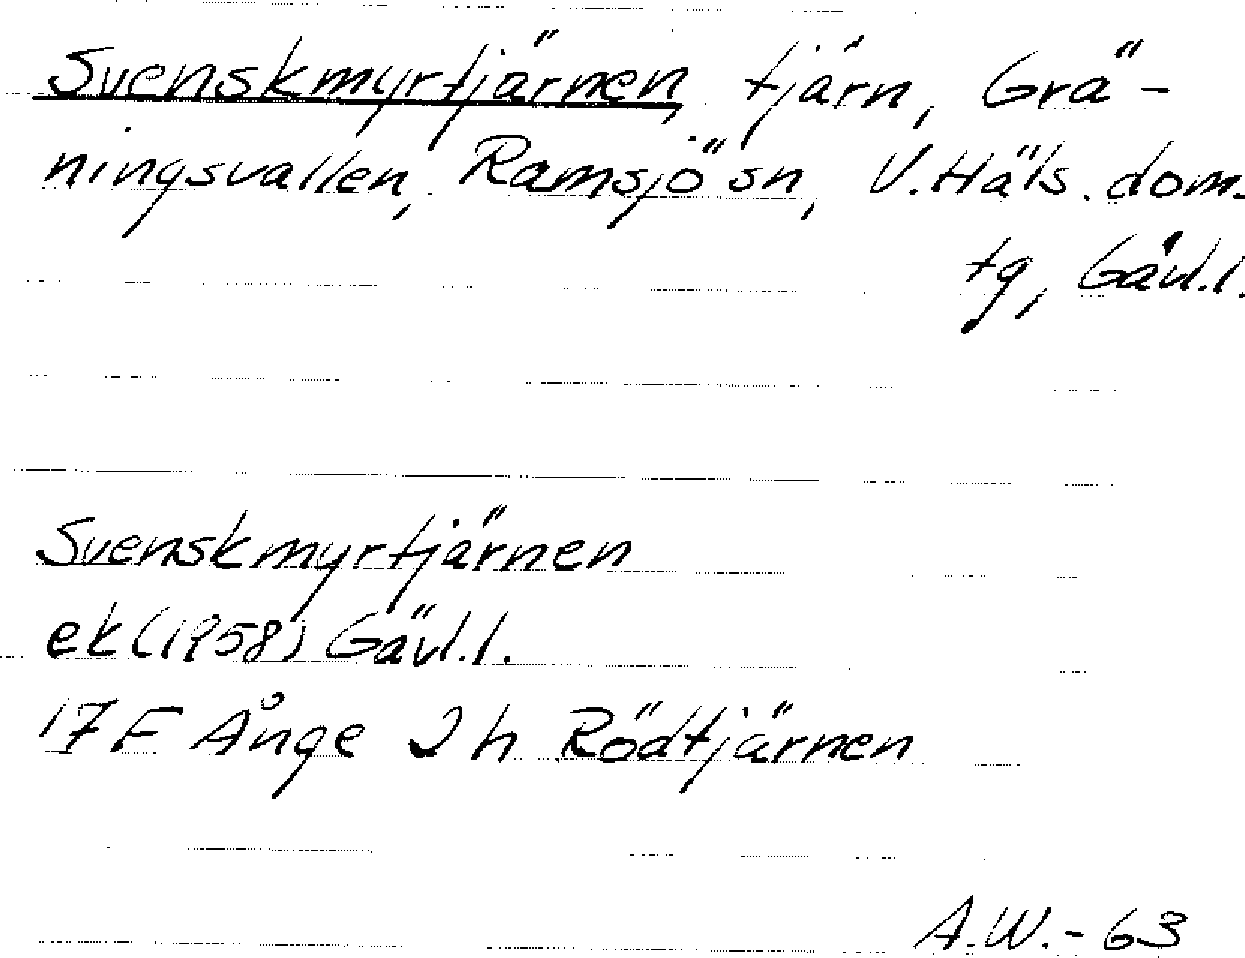 Svenskmyrtjärnen, tjärn, Grä-
ningsvallen, Ramsjö sn, V.Häls. doms.
tg, Gävl.l.
Svenskmyrtjärnen
ek (1958) Gävl.l.
17 F Ånge 2 h Rödtjärnen
A.W.-63